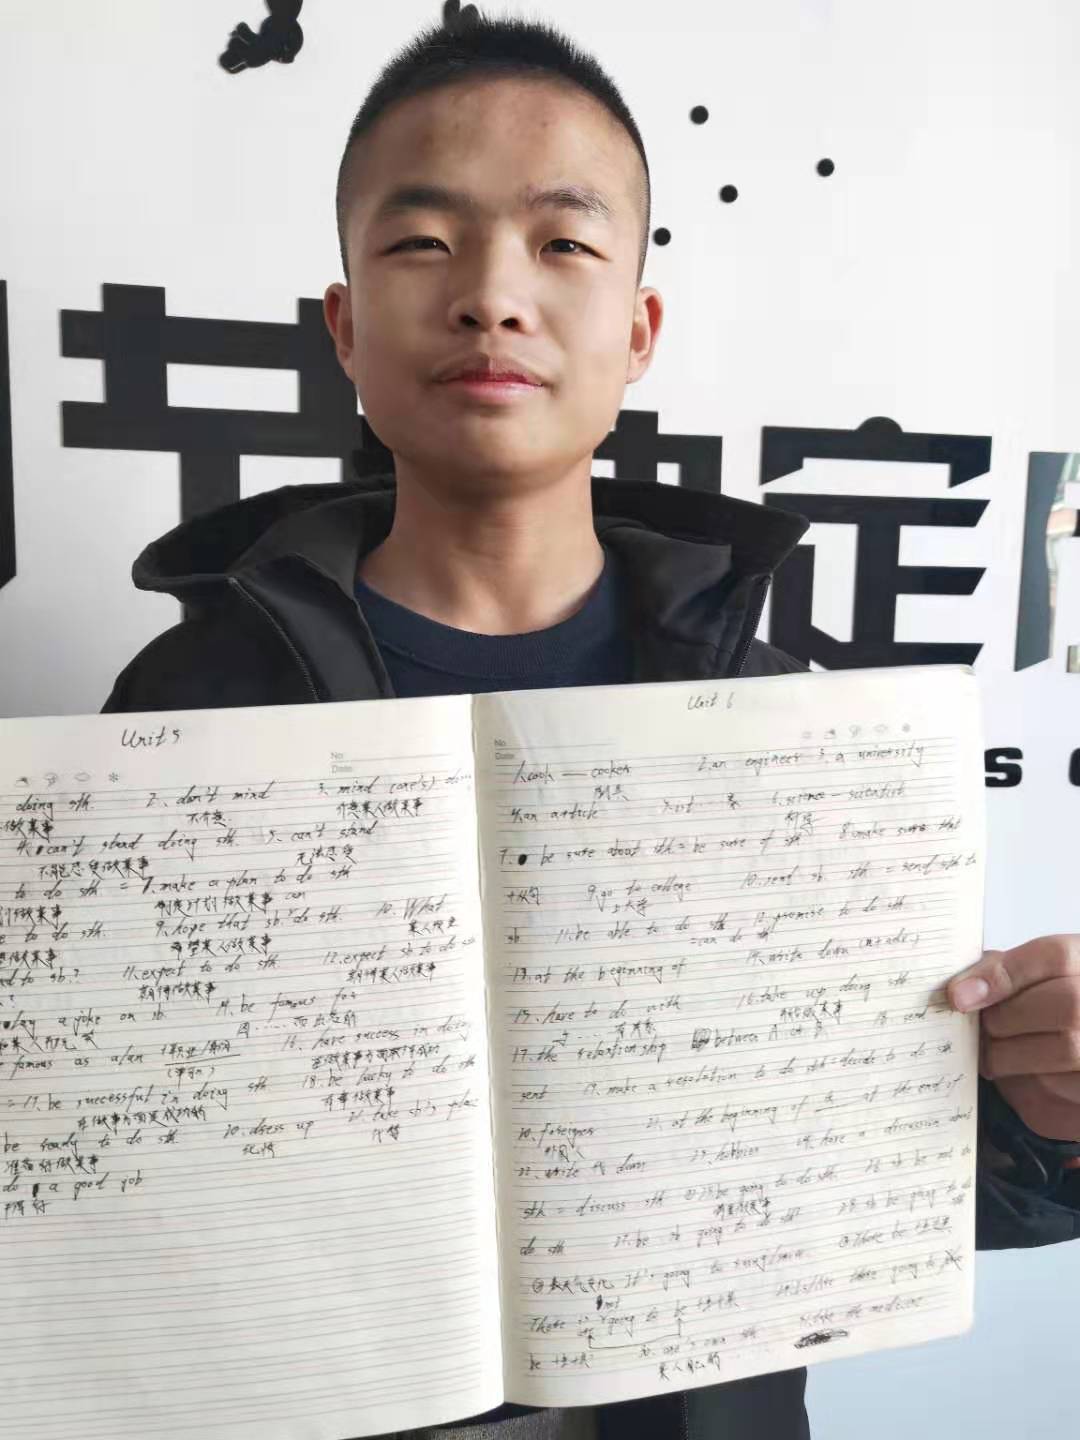 节 决定
s
Unit 5
No
Date
doing sth. 2. don't mind 3. mind (one's) do...
做某事 不介意.. 介意某人做某事
4. can't stand doing sth. 5. can't stand
不能忍受做某事 无法忍受
to do sth = 7. make a plan to do sth
划做某事 制定计划做某事
to do sth. 9. hope that sb can do sth. 10. What
做某事 希望某人做某事
nd to sb.? 11. expect to do sth 12. expect sb to do sth
期待做某事 期待某人做某事
play a joke on sb. 14. be famous for
famous as a/an 16. have success in doing
在做某事方面取得成功
= 17. be successful in doing sth 18. be lucky to do sth
在做某事方面是成功的 有幸做某事
be ready to do sth. 20. dress up 21. take sb's place
准备好做某事 代替
do a good job
Unit 6
No
Date
1. cook — cooker 2. an engineer 3. a university
厨具
4. an article 6. science - scientist
7. be sure about sth = be sure of sth 8. make sure that
+从句 9. go to college 10. send sb. sth = send sth to
上大学
sb 11. be able to do sth 12. promise to do sth
= can do sth
13. at the beginning of 14. write down (n+adv.)
15. have to do with 16. take up doing sth
与……有关系 开始做某事
17. the relationship between A and B 18. send —
sent 19. make a resolution to do sth = decide to do sth
20. foreigner 21. at the beginning of at the end of
外国人
22. write down 23. hobbies 24. have a discussion about
sth = discuss sth 25. be going to do sth. 26. sb be not
do sth 27. be sb going to do sth? 28. sb be going to do
sth
It's going to There be
not
There is going to be going to
are
be 30. one's own sth 31. take the medicine
某人自己的